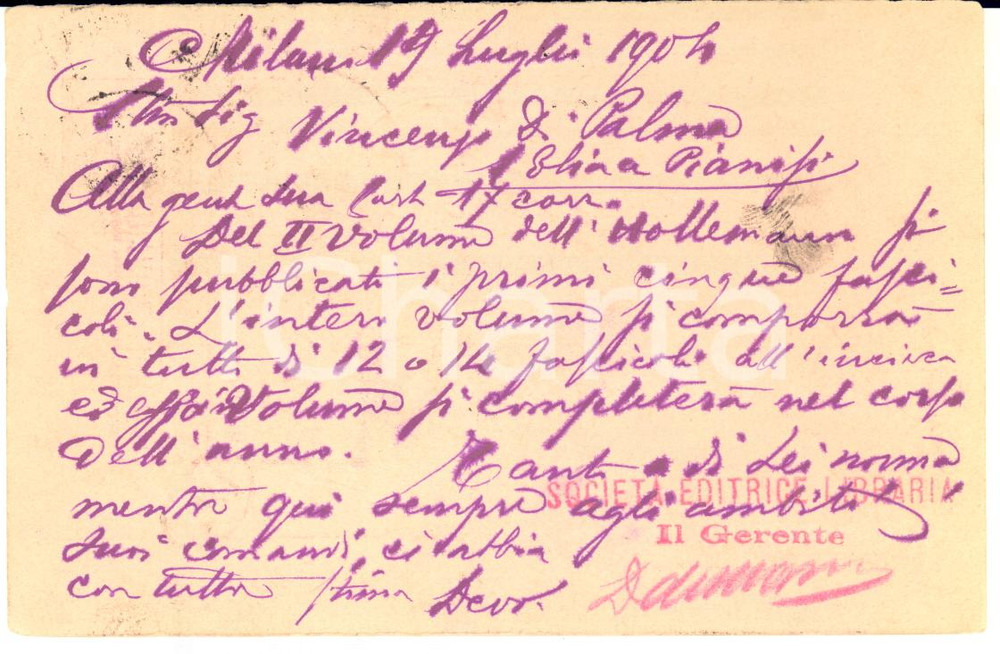 Milano 19 Luglio 1904
Vincenzo Di Palma
S. Elia a Pianisi
Alla gent Sua Cart 17 corr.
Del II Volume dell'Hollemann si
sono pubblicati i primi cinque fasci=
coli. L'intero volume si comporrà
in tutti di 12 o 14 fascicoli all'incirca
ed esso Volume si completerà nel corso
dell'anno.
Tanto di Lei norma
mentre qui sempre agli ambiti
suoi comandi, ci abbia
con tutta stima Devo.
SOCIETÀ EDITRICE LIBRARIA
Il Gerente
iCharta